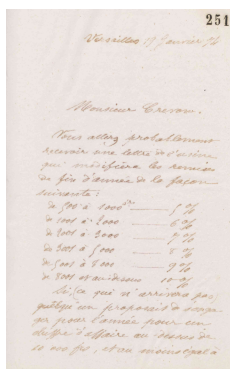 251
Versailles 17 Janvier 76
Monsieur Crevon.
Vous allez probablement
recevoir une lettre de l'usine
qui modifiera les remises
de fin d'année de la façon
suivante :
de 500 à 1000
de 1001 à 2000 6 %
de 2001 à 3000 7 %
de 3001 à 5000 8 %
de 5001 à 7000 9 %
de 7001 et au dessus 10 %
Si ce qui n'arrivera pas,
quelqu'un proposait
pour l'année pour un
chiffre d'affaire au dessous de
10 000 frs, et au moins égal à